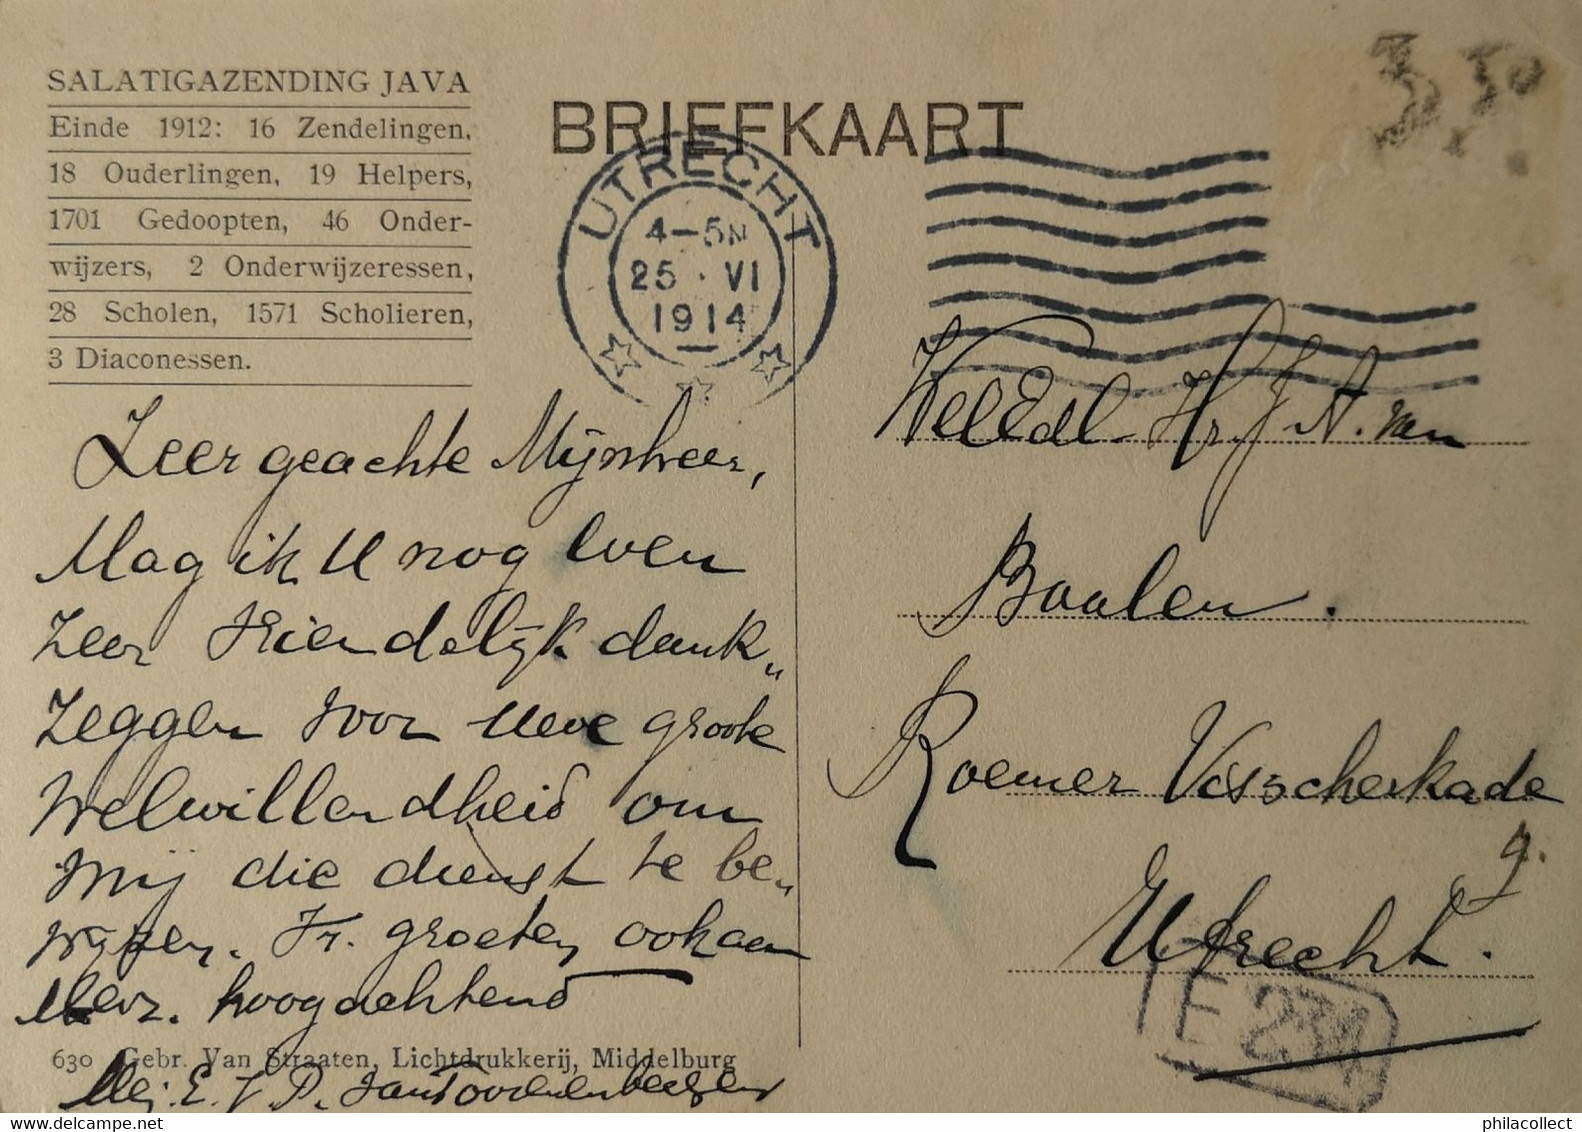 SALATIGAZENDING JAVA
Einde 1912: 16 Zendelingen,
18 Ouderlingen, 19 Helpers,
1701 Gedoopten, 46 Onder-
wijzers, 2 Onderwijzeressen,
28 Scholen, 1571 Scholieren,
3 Diaconessen.
BRIEFKAART
UTRECHT
4-5N
25 · VI
1914
3,50
Zeer geachte Mijnheer,
Mag ik U nog even
zeer vriendelijk dank„
zeggen voor Uwe groote
welwillendheid om
mij die dienst te be„
wijzen. Vr. groeten ook aan
Mevr. hoogachtend
Mej. E. J. P.
630 Gebr. Van Straaten, Lichtdrukkerij, Middelburg
WelEdl. Hr. J. A. van
Baalen.
Roemer Visscherkade
9.
Utrecht.
E 234
philacollect